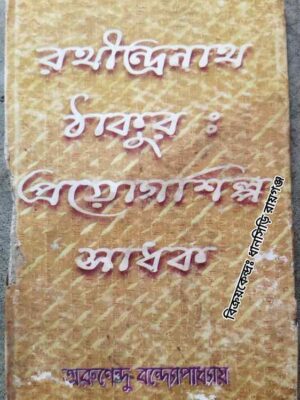 রথীন্দ্রনাথ
ঠাকুর :
প্রয়োগশিল্প
সাধক
অরুণেন্দু বন্দ্যোপাধ্যায়
বিক্রয়কেন্দ্রঃ ধানসিড়ি রায়গঞ্জ